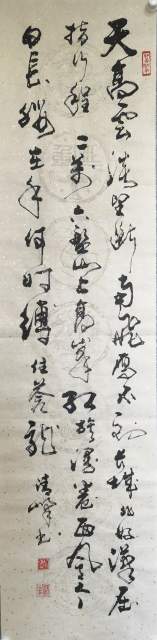 天高雲淡望断南飛雁不到长城非好漢屈
指行程二萬六盤山上高峰红旗漫卷西风今
日长缨在手何时縛住蒼龙清峰书